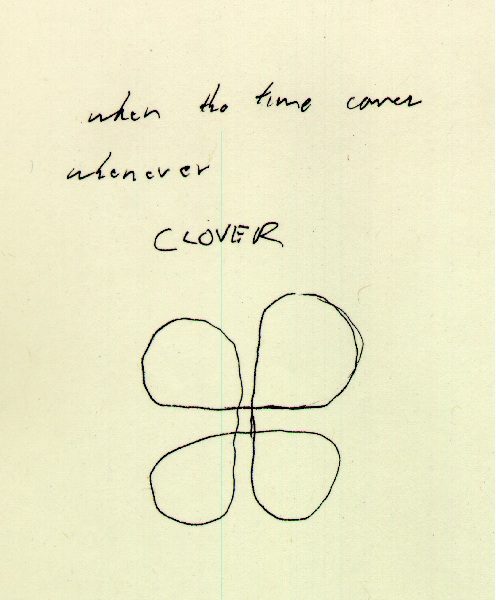 when the time comes
whenever
CLOVER